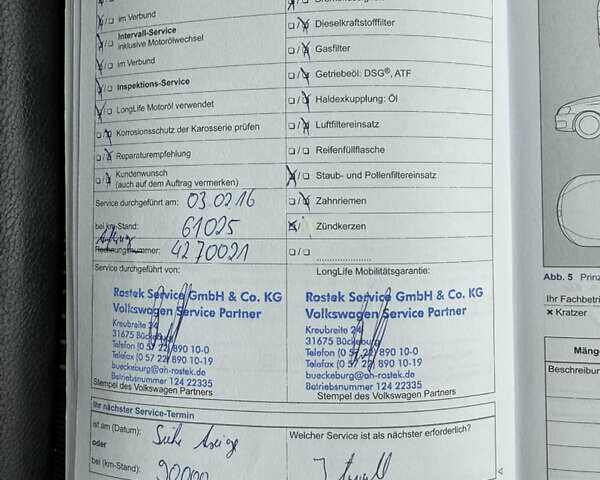 im Verbund
Intervall-Service
inklusive Motorölwechsel
im Verbund
Inspektions-Service
LongLife Motoröl verwendet
Korrosionsschutz der Karosserie prüfen
Reparaturempfehlung
Kundenwunsch
(auch auf dem Auftrag vermerken)
Service durchgeführt am: 03.02.16
bei km-Stand: 61025
Auftrag
Rechnungsnummer: 4270021
Service durchgeführt von:
Rostek Service GmbH & Co. KG
Volkswagen Service Partner
Kreubreite 24
31675 Bückeburg
Telefon (0 57 22) 890 10-0
Telefax (0 57 22) 890 10-19
bueckeburg@ah-rostek.de
Betriebsnummer 124 22335
Stempel des Volkswagen Partners
Dieselkraftstofffilter
Gasfilter
Getriebeöl: DSG®, ATF
Haldexkupplung: Öl
Luftfiltereinsatz
Reifenfüllflasche
Staub- und Pollenfiltereinsatz
Zahnriemen
Zündkerzen
LongLife Mobilitätsgarantie:
Rostek Service GmbH & Co. KG
Volkswagen Service Partner
Kreubreite 24
31675 Bückeburg
Telefon (0 57 22) 890 10-0
Telefax (0 57 22) 890 10-19
bueckeburg@ah-rostek.de
Betriebsnummer 124 22335
Stempel des Volkswagen Partners
Ihr nächster Service-Termin
ist am (Datum): Siehe Anzeige
oder
bei (km-Stand): 90000
Welcher Service ist als nächster erforderlich?
Abb. 5 Prinz
Ihr Fachbetri
× Kratzer
Mäng
Beschreibun